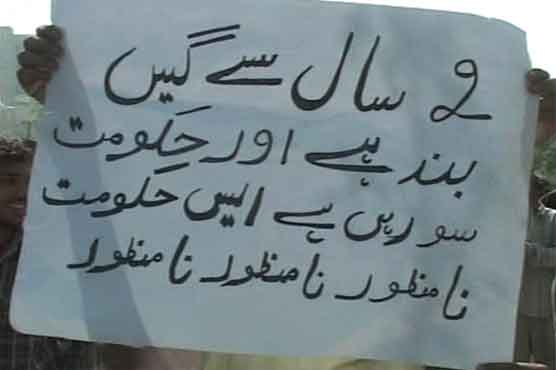 2 سال سے گیس
بند ہے اور حکومت
سورہی ہے ایسی حکومت
نامنظور نامنظور نامنظور